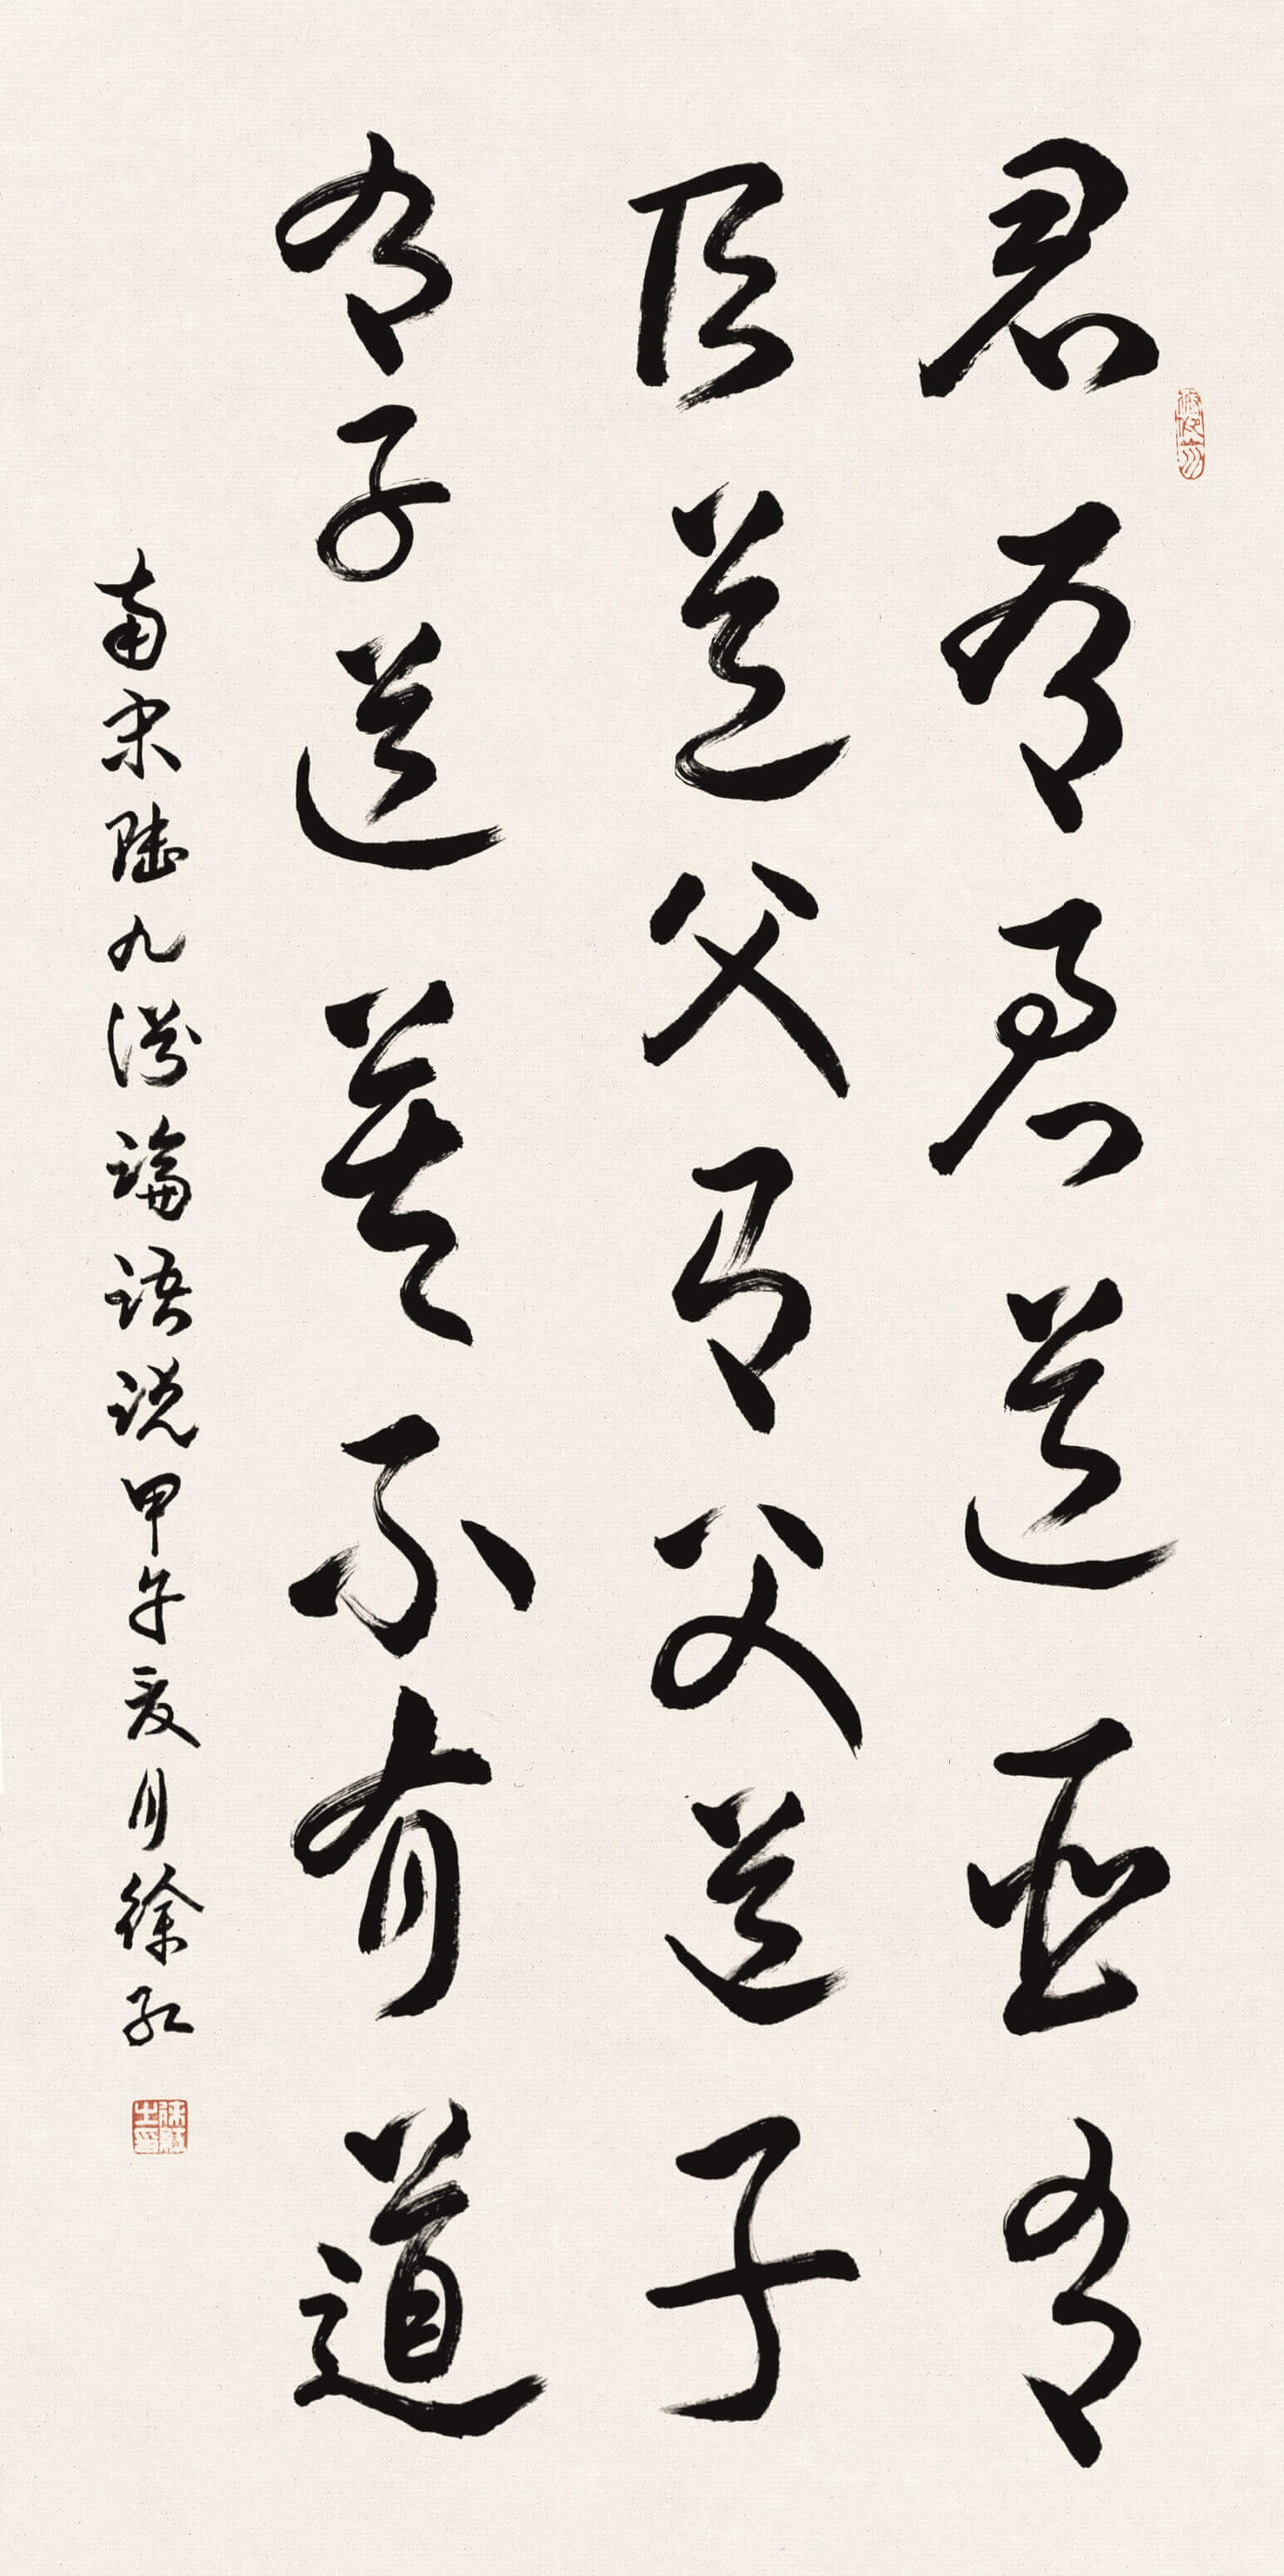 君有君道臣有
臣道父有父道子
有子道莫不有道
南宋陸九淵論語說甲午夏月徐紅